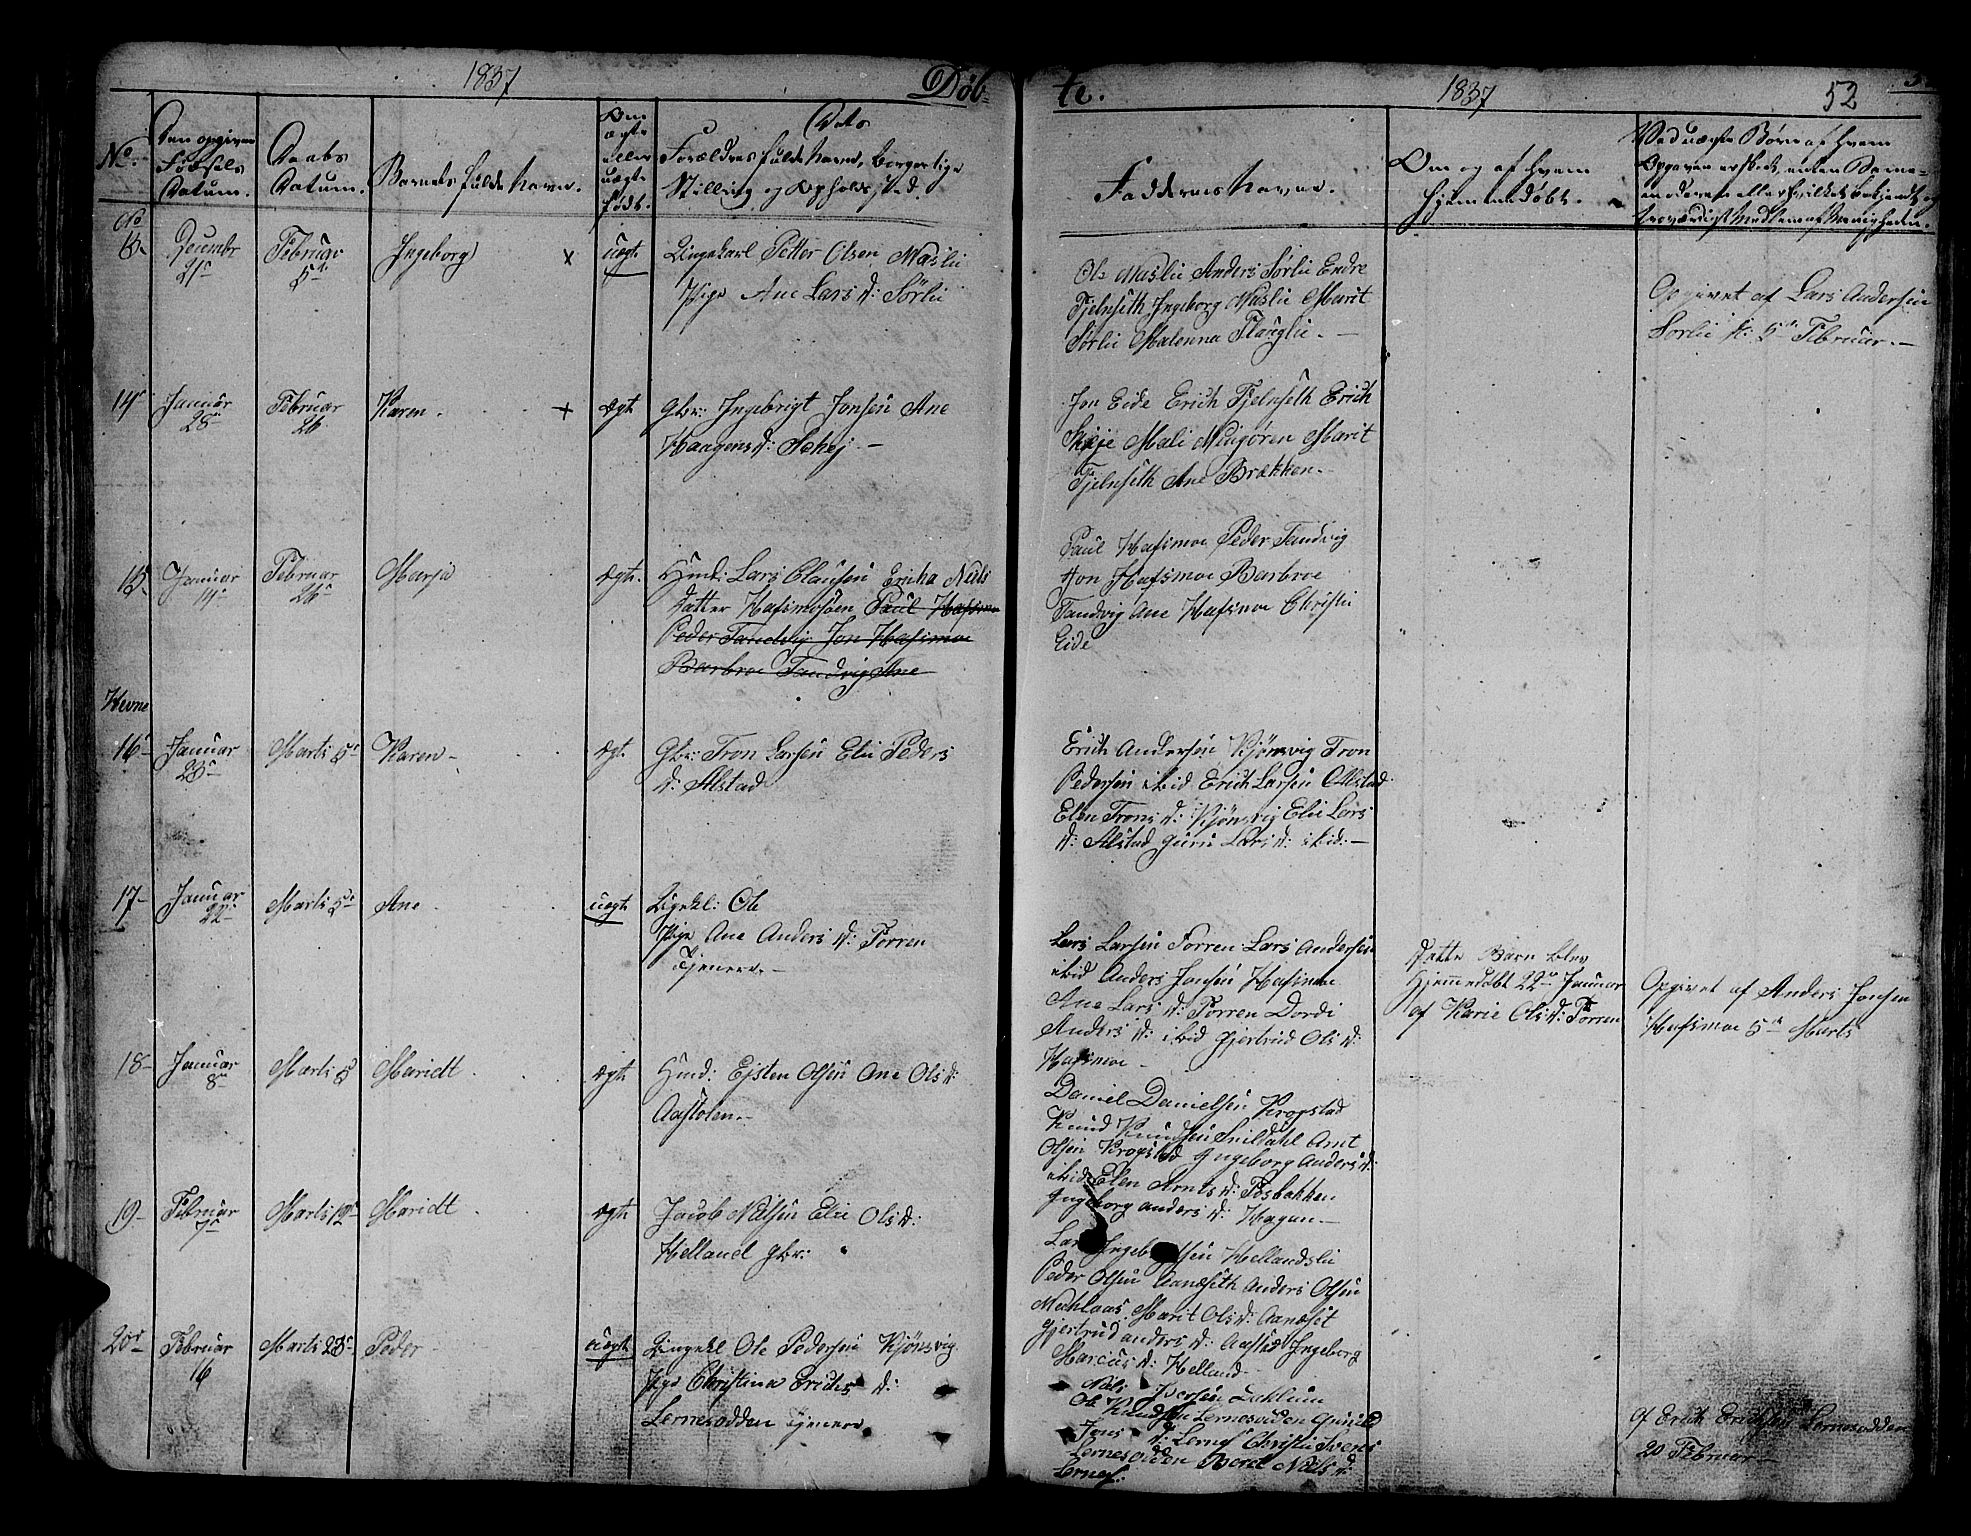 1837
Døb-
te.
1837
52
No.
Den opgivne
Fødsels
Datum.
Daabs
Datum.
Barnets fulde Navn.
Om
ægte
eller
uægte
født.
Dets
Forældres fulde Navn, borgerlige
Stilling og Opholdssted.
Faddernes Navne.
Om og af hvem
hjemmedøbt.
Ved uægte Børn af hvem
No
13.
Decembr
21
Februar
5te
Ingeborg
x
uægt
Ungekarl Petter Olsen Maslie
Pige Ane Lars D: Sørlie
Ole Maslie Anders Sørlie Endre
Fjelnseth Ingeborg Maslie Marit
Sørlie Malenna Flauglie. —
Opgivet af Lars Andersen
Sørlie d: 5te Februar. —
14
Januar
28
Februar
26
Karen.
+
ægt
Gbr: Ingebrigt Jonsen Ane
Haagens D: Schej —
Jon Eide Erich Fjelnseth Erich
Skeje Mali Marit
Fjelnseth Ane Brækken. —
15
Januar
14
Februar
26
Marja
ægt.
Hmd: Lars Clausen Ericha Niels
Datter Hafsmosøen Paul Hafsmoe
Peder Tandvig Jon Hafsmoe
Barbroe Tandvig Ane
Paul Hafsmoe Peder Tandvig
Jon Hafsmoe Barbroe
Tandvig Ane Hafsmoe Christie
Eide
Hevne
16
Januar
23
Marts 5
Karen —
ægt.
Gbr: Tron Larsen Elie Peders
D: Alstad
Erich Andersen Kjønsvig Tron
Pedersen ibid Erich Larsen Alstad
Elen Trons D: Kjønsvig Elie Lars
D: Alstad Guru Lars D: ibid. —
17 —
Januar
22
Marts 5
Ane
uægt
Ungkl: Ole
Pige Ane Anders D: Torren
Tjenere. —
Lars Larsen Torren Lars Andersen
ibid Anders Jonsen Hafsmoe
Ane Lars D: Torren Dordi
Anders D: ibid Gjertrud Ols D:
Hafsmoe —
Dette Barn blev
Hjemmedøbt 22 Januar
af Karie Ols D: Torren
Opgivet af Anders Jonsen
Hafsmoe 5te Marts
18 —
Januar
8
Marts 5
Maridt
ægt
Hmd: Ejsten Olsen Ane Ols D:
Aastolen. —
Daniel Danielsen Krogstad
Knud Knudsen Snildahl Arnt
Olsen Krogstad Ingeborg Anders D:
ibid Elen Arnts D: Fosbakken
Ingeborg Anders D: Hagan. —
19 —
Februar
7
Marts 12
Maridt
ægt
Jacob Nilsen Elie Ols D:
Helland Gbr:
Lars Ingebrigtsen Hellandslie
Peder Olsen Aanæseth Anders Olsen
Marit Ols D: Aanæset
Gjertrud Anders D: Ingeborg
Marcus D: Helland —
20
Februar
16
Marts 23
Peder —
uægt
Ungekl Ole Pedersen Kjønsvig
Pige Christina Erichs D:
Lernesodden Tjenere.
Niels Iversen
Ole Knudsen Lernesodden Gunild
Jons D: Lernes Christie Ivers
Lernesodden Beret Niels D:
Lernes.
Af Erich Erichsen Lernesodden
20 Februar —